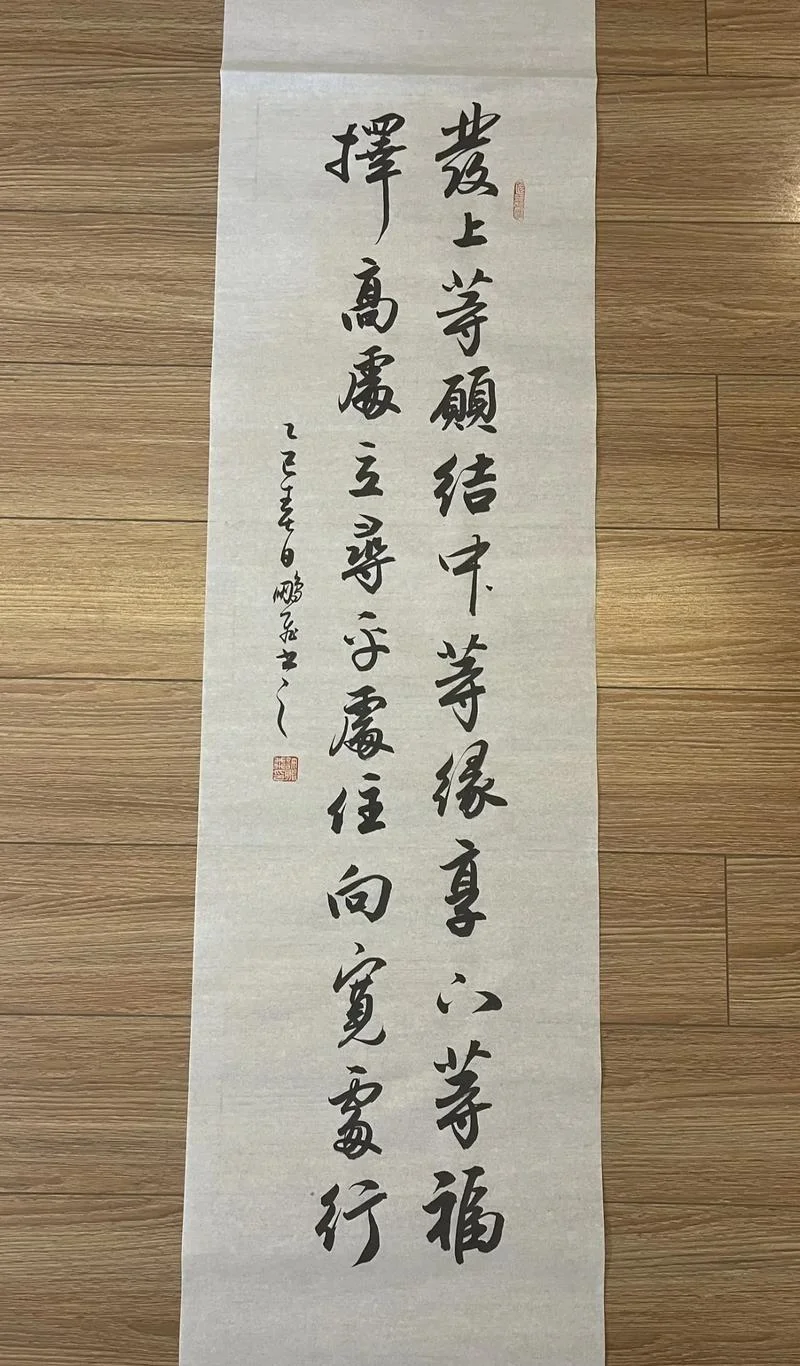 發上等願結中等緣享下等福
擇高處立尋平處住向寬處行
乙巳春日鵬飛書之